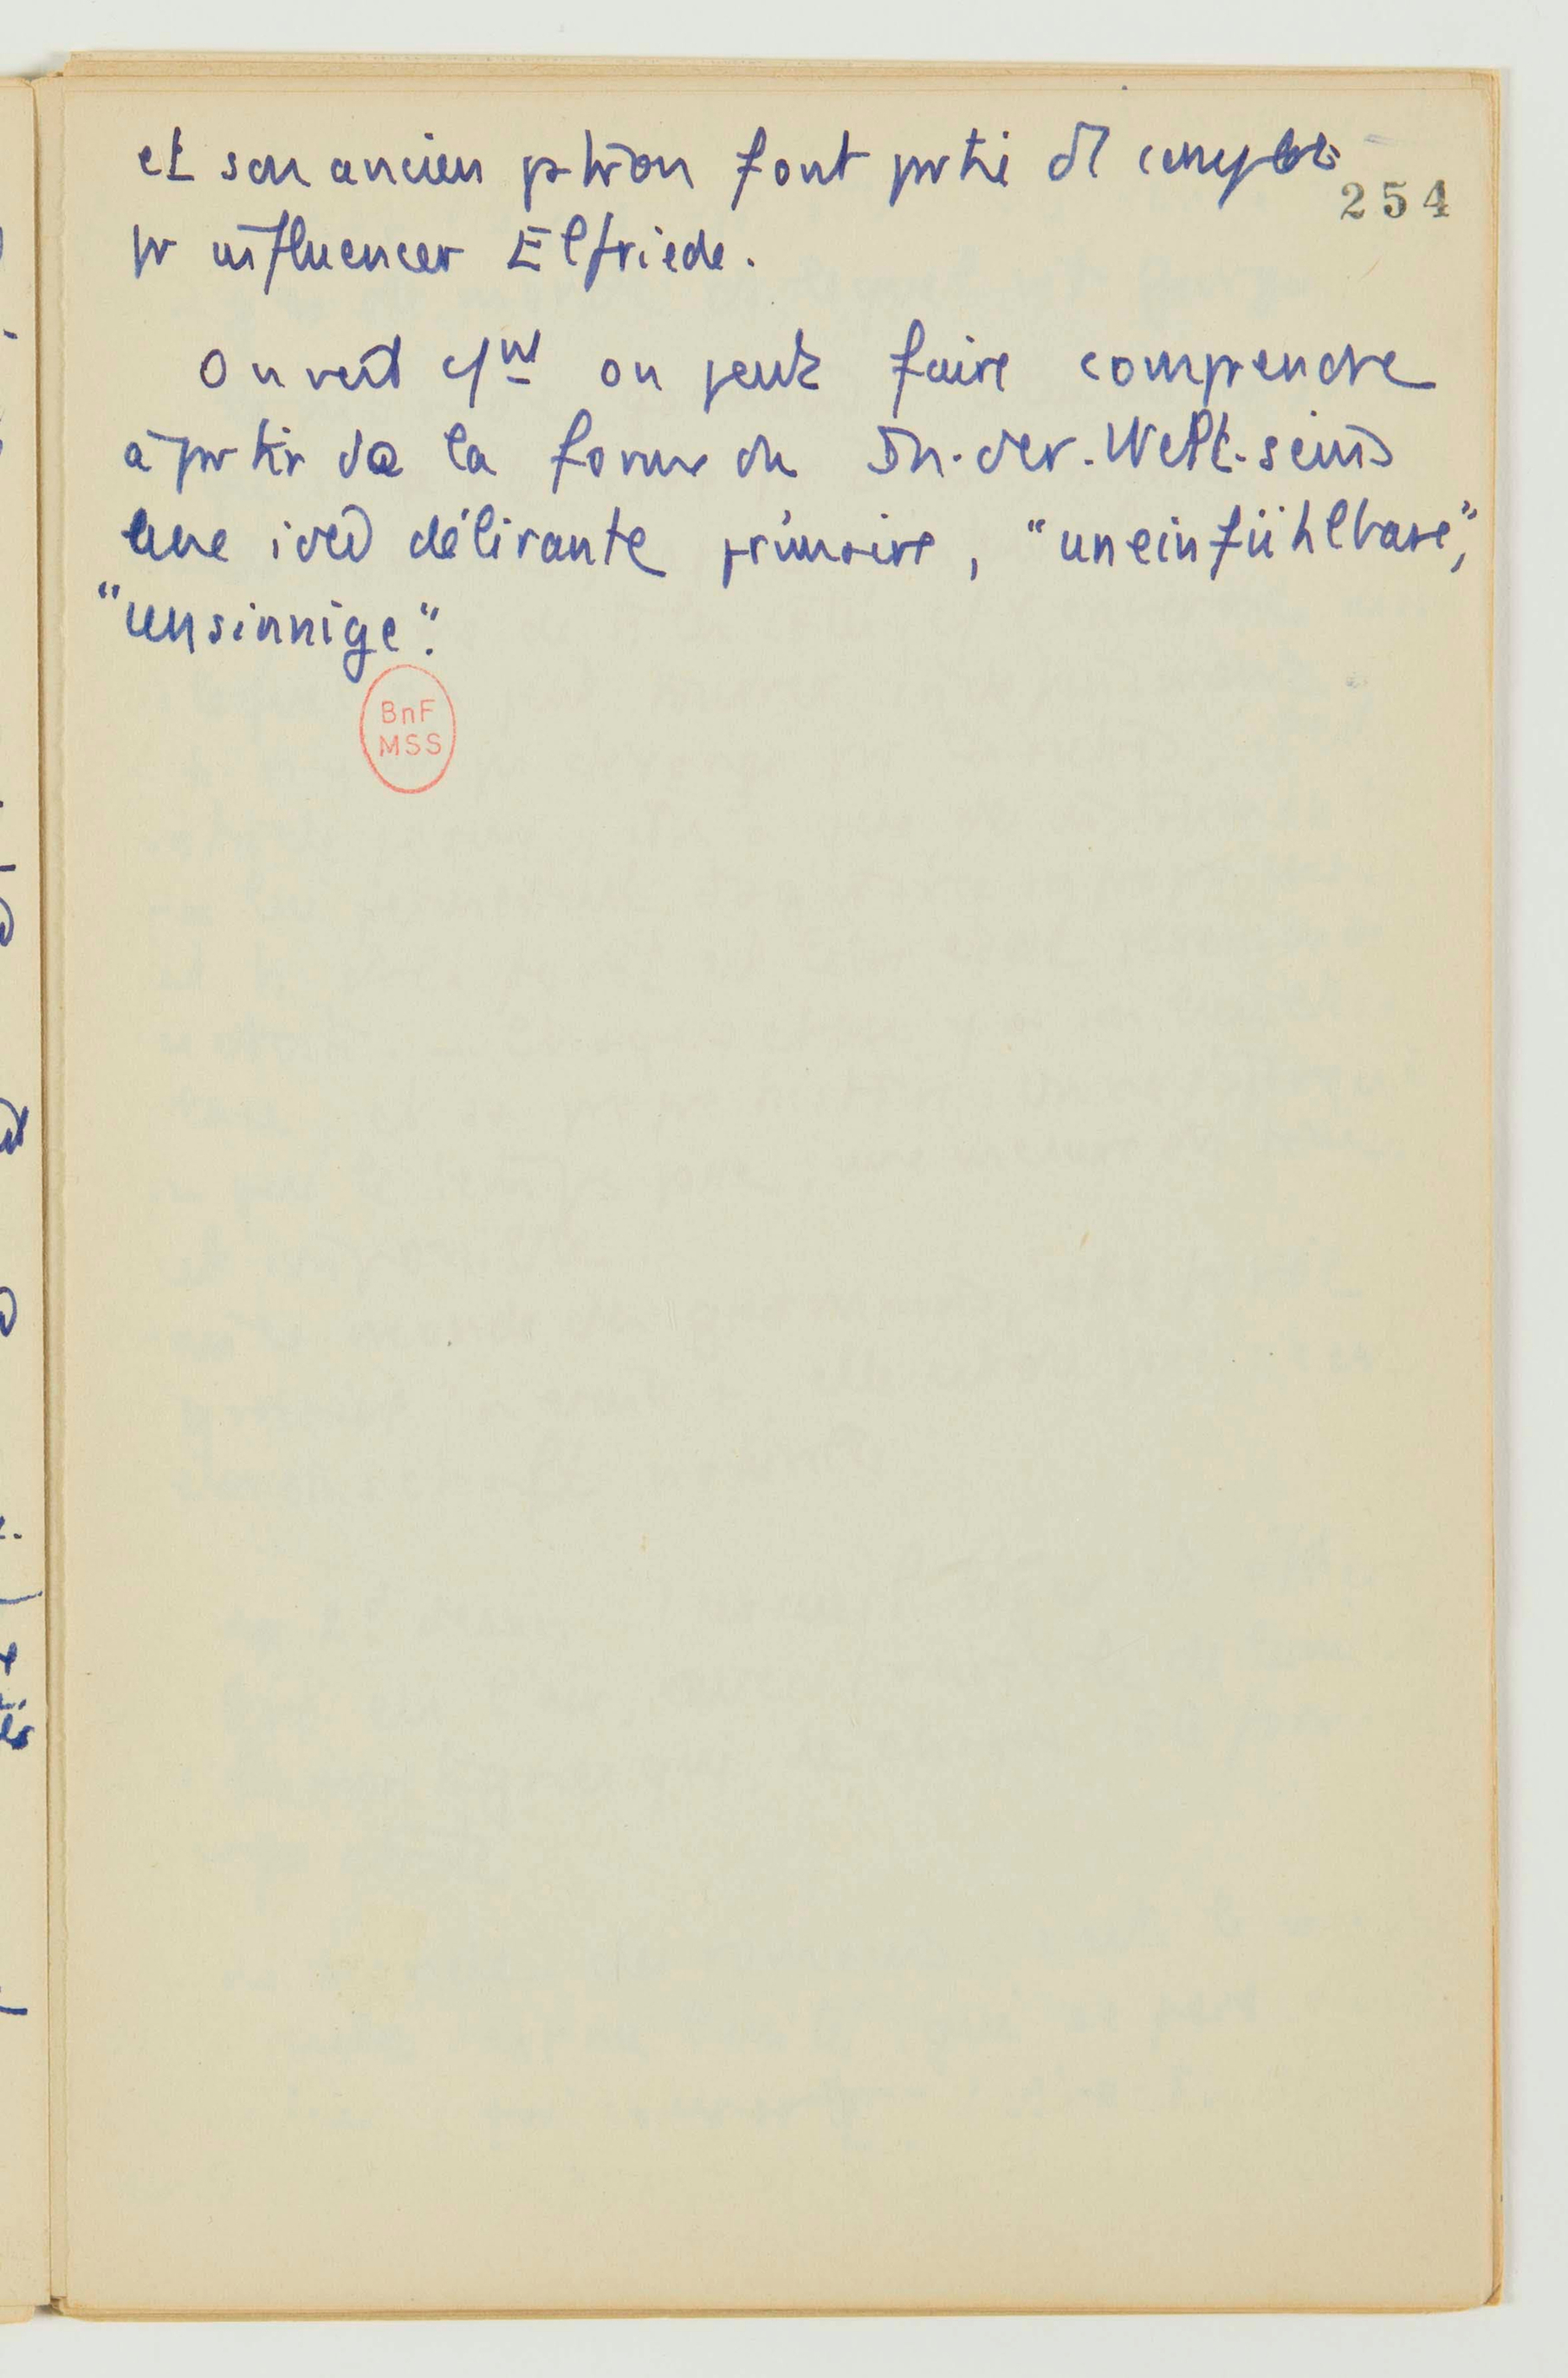 et son ancien patron font partie du complot
254
pr influencer Elfriede.
On voit cmt on peut faire comprendre
à partir de la forme du In-der-Welt-seins
une idée délirante primaire, "uneinfühlbare",
"unsinnige".
BnF
MSS